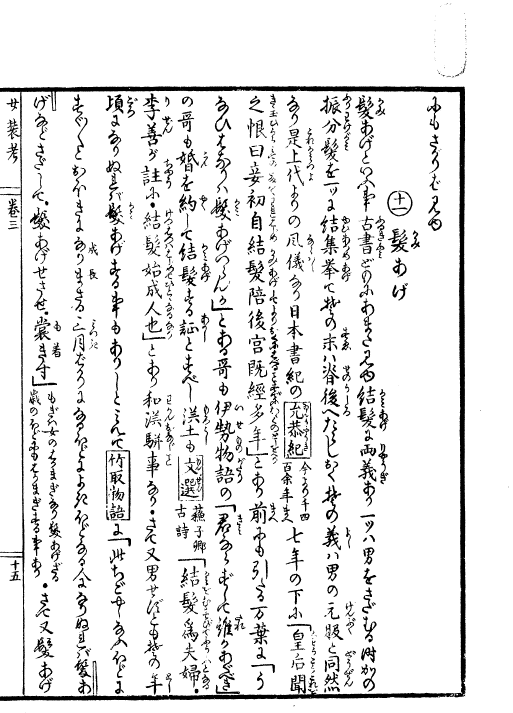 ㊉一 髪あげ
髪あげといふ事古書どもにあまた見ゆ結髪に両義あり一ツハ男をさだむる時かの
振分髪を一ツに結集挙て其の末ハ脊後へたらしおく其の義ハ男の元服と同然
なり是上代よりの風儀なり日本書紀の允恭紀 今より千四百余年まへ 七年の下に「皇后聞
之恨曰妾初自結髪陪後宮既經多年」とあり前にも引たる万葉に「う
なひはなりハ髪あげつらんか」とある哥も伊勢物語の「君ならずして誰かあぐべき」
の哥も婚を約して結髪する証とすべし漢土も文選 蘇子卿古詩 「結髪爲夫婦・
李善が註に・結髪始成人也」とあり和漢駢事なり・さて又男せざれども其の年
頃になりぬれば髪あげする事もありしとみえて竹取物語に「此ちごやしなふほどに
すく〳〵とおほきになりまさる三月ばかりになるほどによきほどなる人になりぬれば髪あ
げなどさだして。髪あげせさせ。裳きす」もぎハ女のはかまぎなり髪あげざる歳のほどにもはかまぎする事あり・さて又髪あげ
女装考 巻三 十五